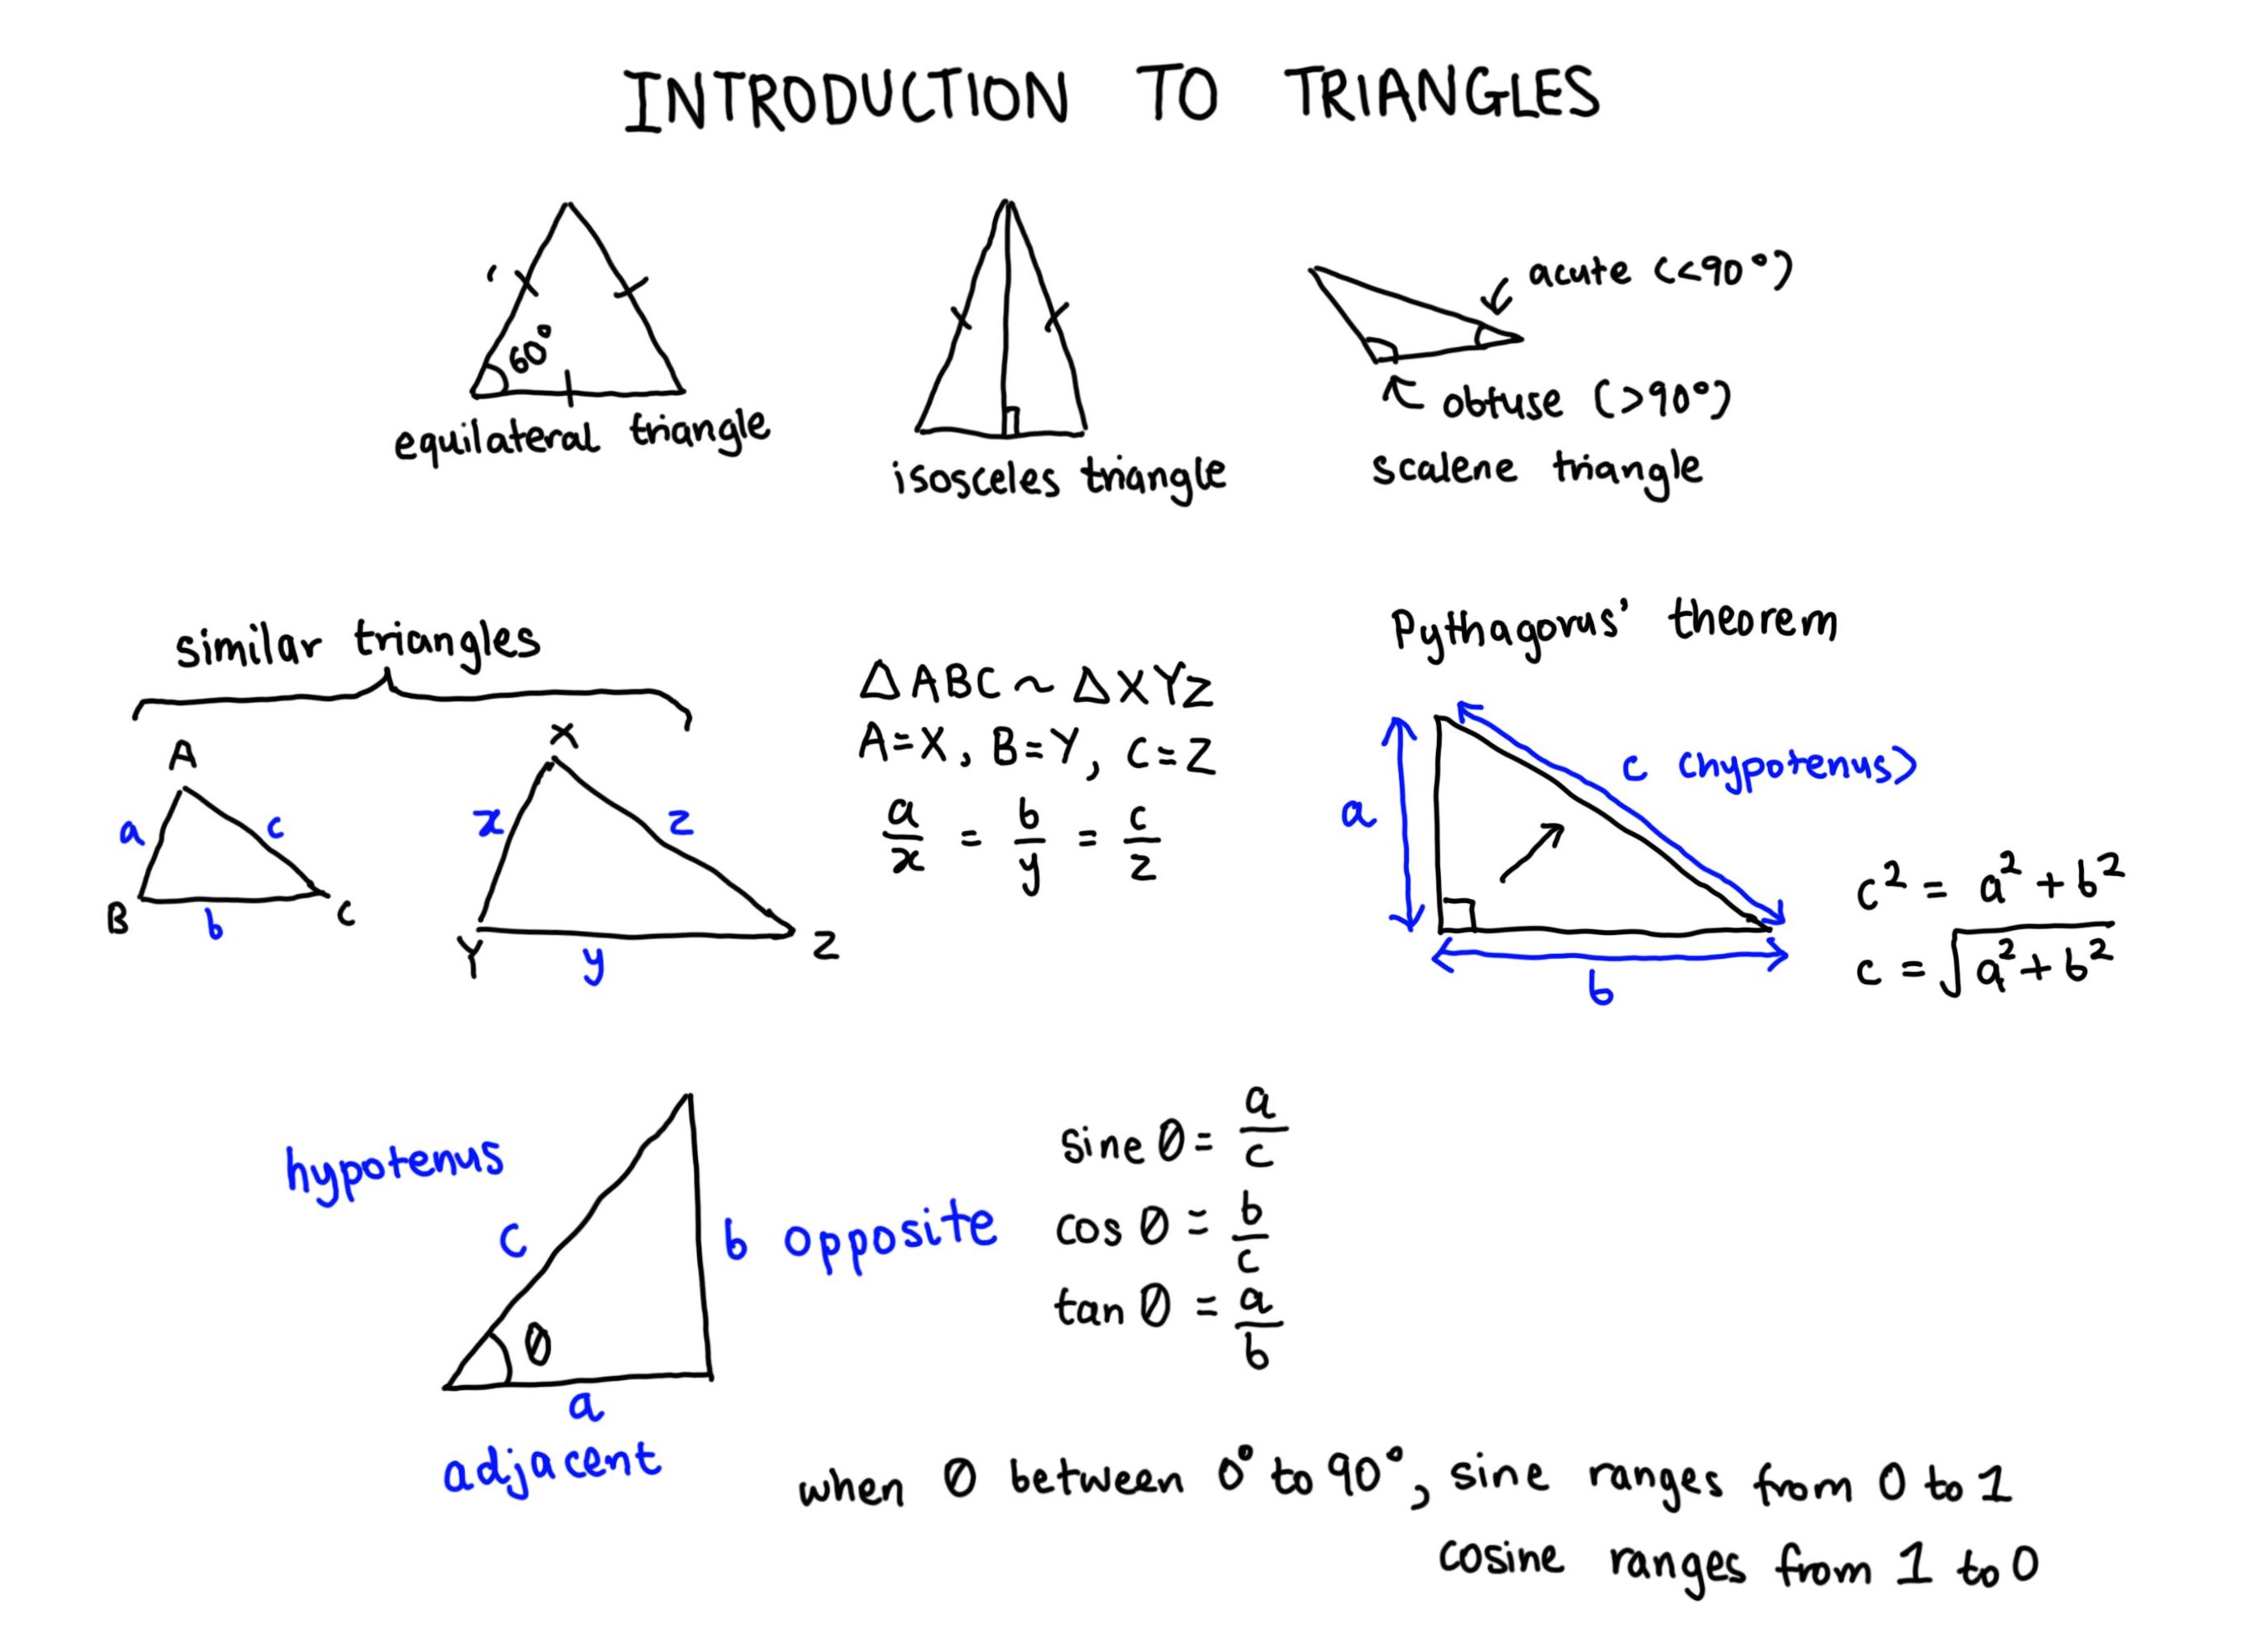 INTRODUCTION TO TRIANGLES
60°
equilateral triangle
isosceles triangle
acute (<90°)
obtuse (>90°)
scalene triangle
similar triangles
A
a
c
B
b
C
X
x
z
Y
y
Z
△ABC ~ △XYZ
A=X, B=Y, C=Z
a/x = b/y = c/z
Pythagorus' theorem
a
c (hypotenus)
b
c² = a² + b²
c = √a² + b²
hypotenus
c
b opposite
θ
a
adjacent
sine θ = a/c
cos θ = b/c
tan θ = a/b
when θ between 0° to 90°, sine ranges from 0 to 1
cosine ranges from 1 to 0